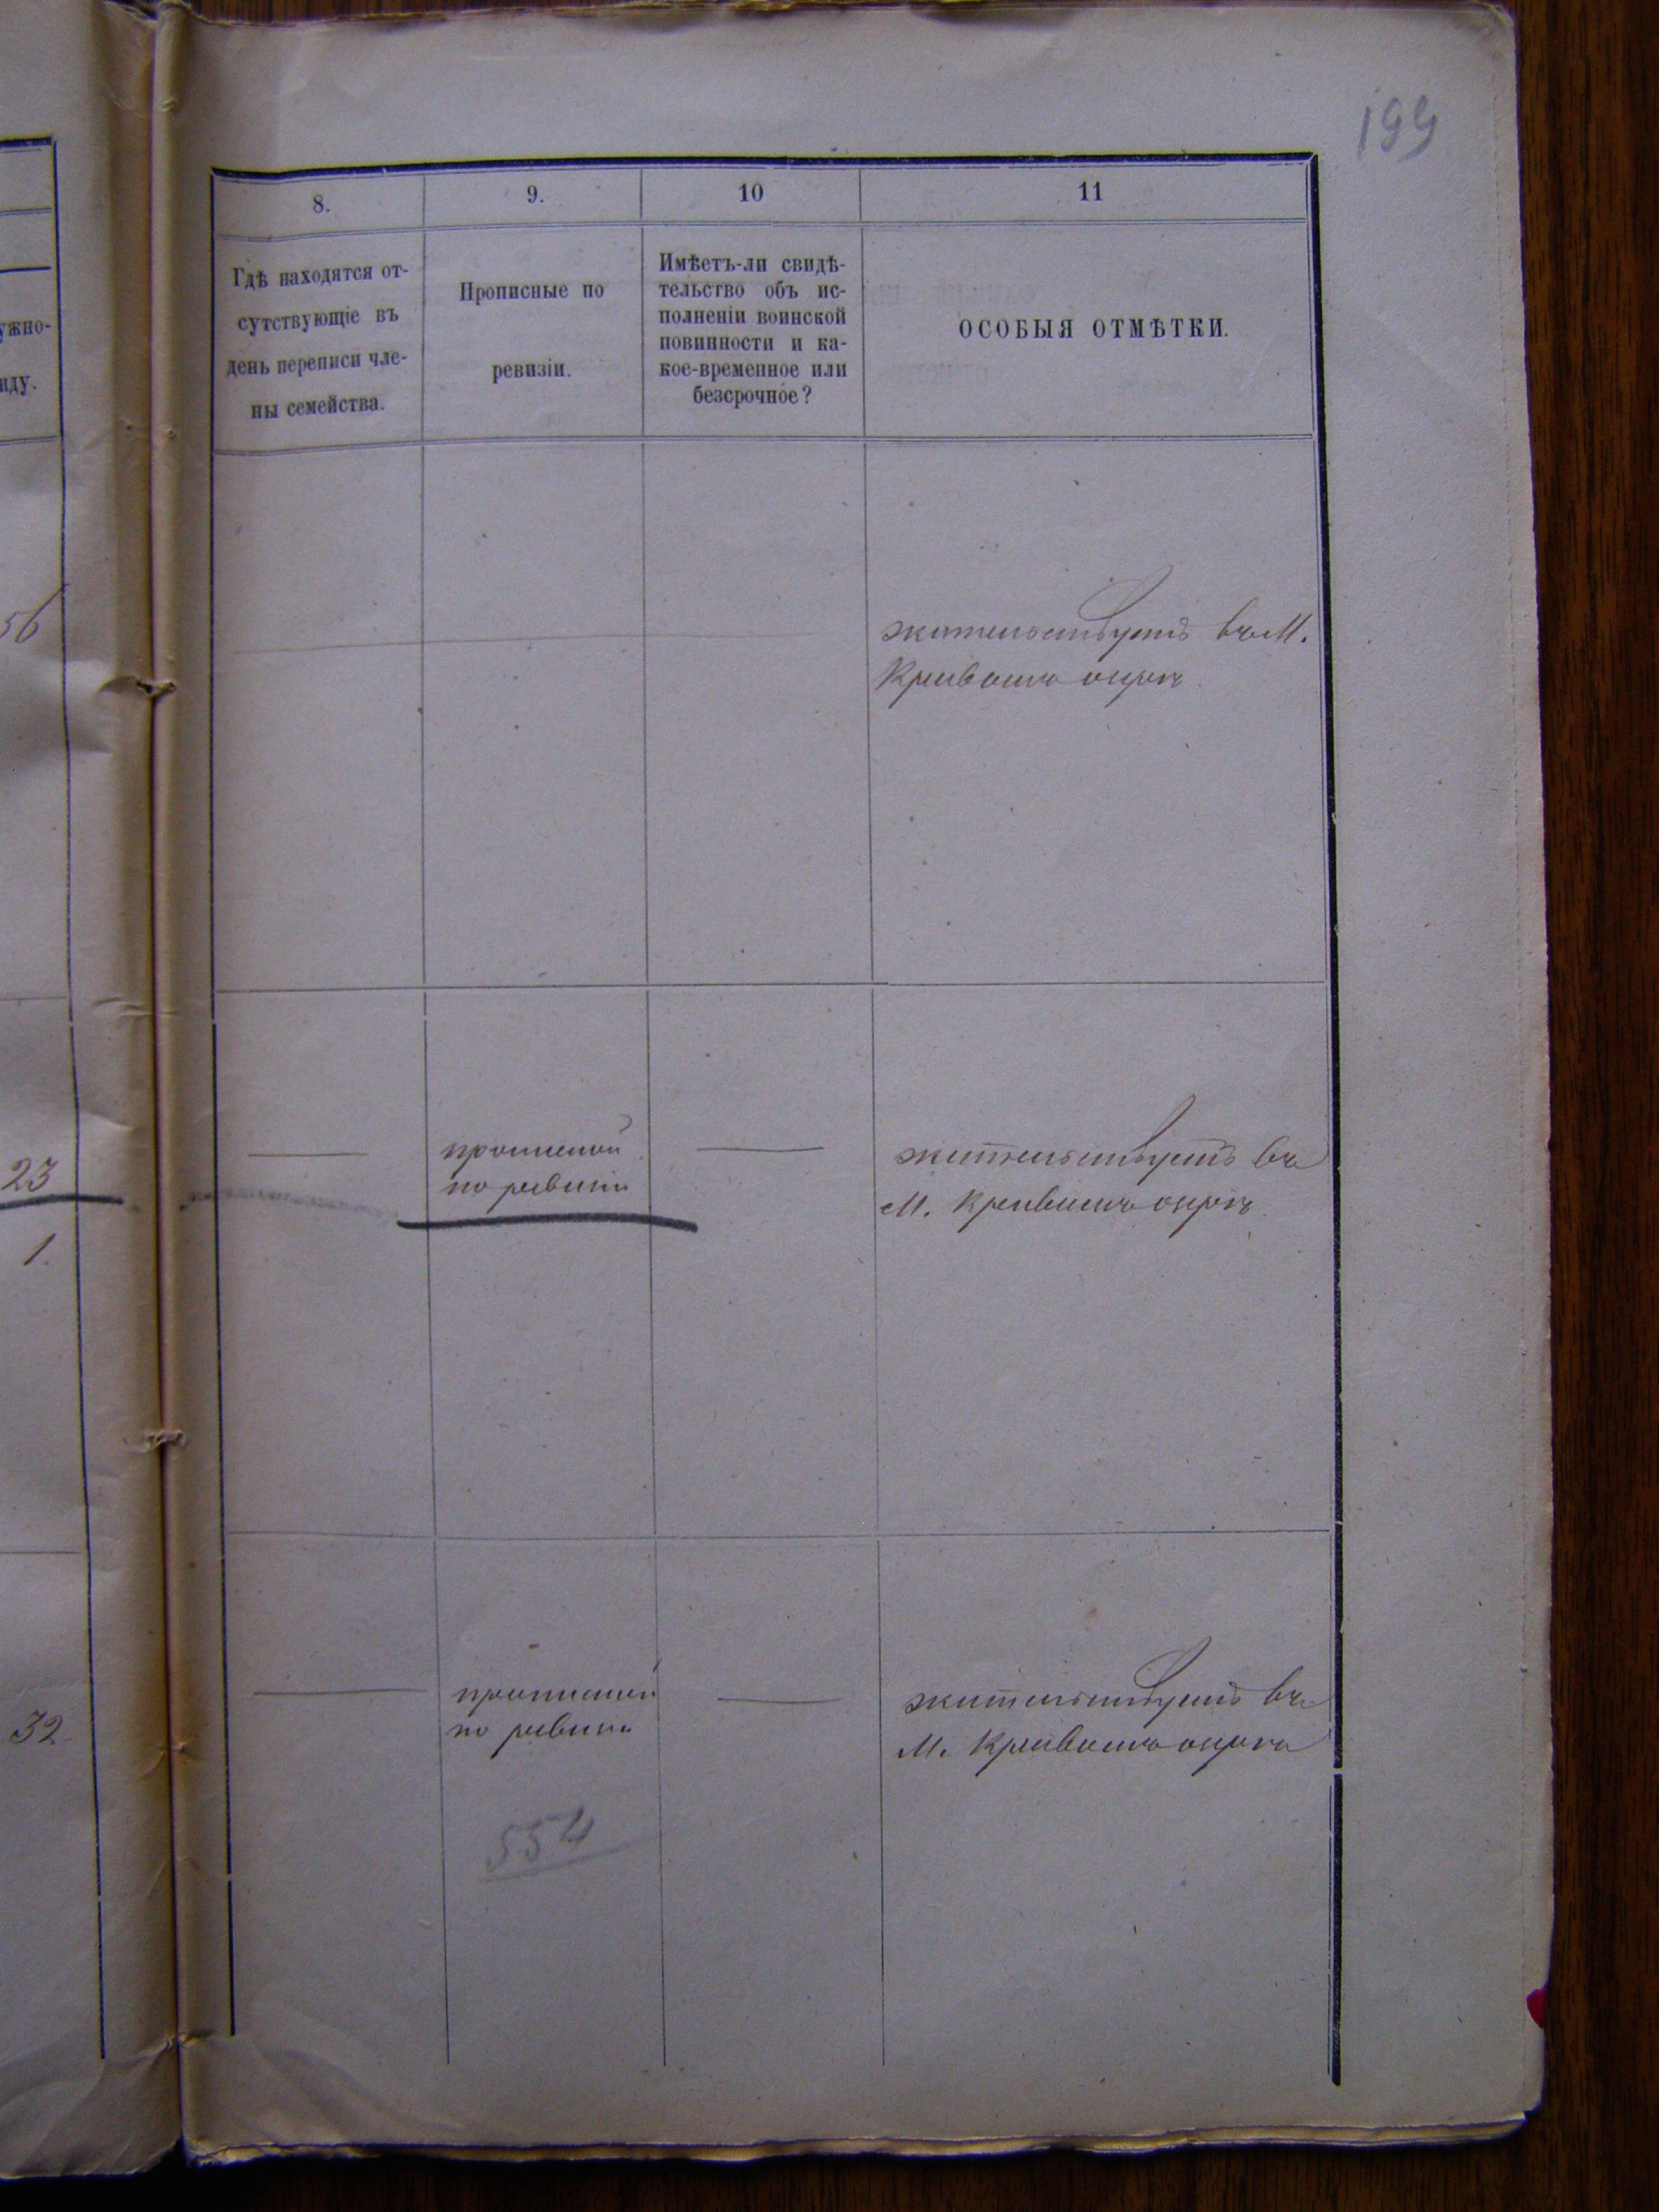 199
8.
9.
10
11
Гдѣ находятся от-
сутствующіе въ
день переписи чле-
ны семейства.
Прописные по
ревизіи.
Имѣетъ-ли свидѣ-
тельство объ ис-
полненіи воинской
повинности и ка-
кое-временное или
безсрочное?
ОСОБЫЯ ОТМѢТКИ.
ужно-
иду.
56
жительствуетъ въ М.
Кривомъ озерѣ
23
1.
прописной
по ревизіи
жительствуетъ въ
М. Кривомъ озерѣ
32
прописной
по ревизіи
жительствуетъ въ
М. Кривомъ озерѣ
554